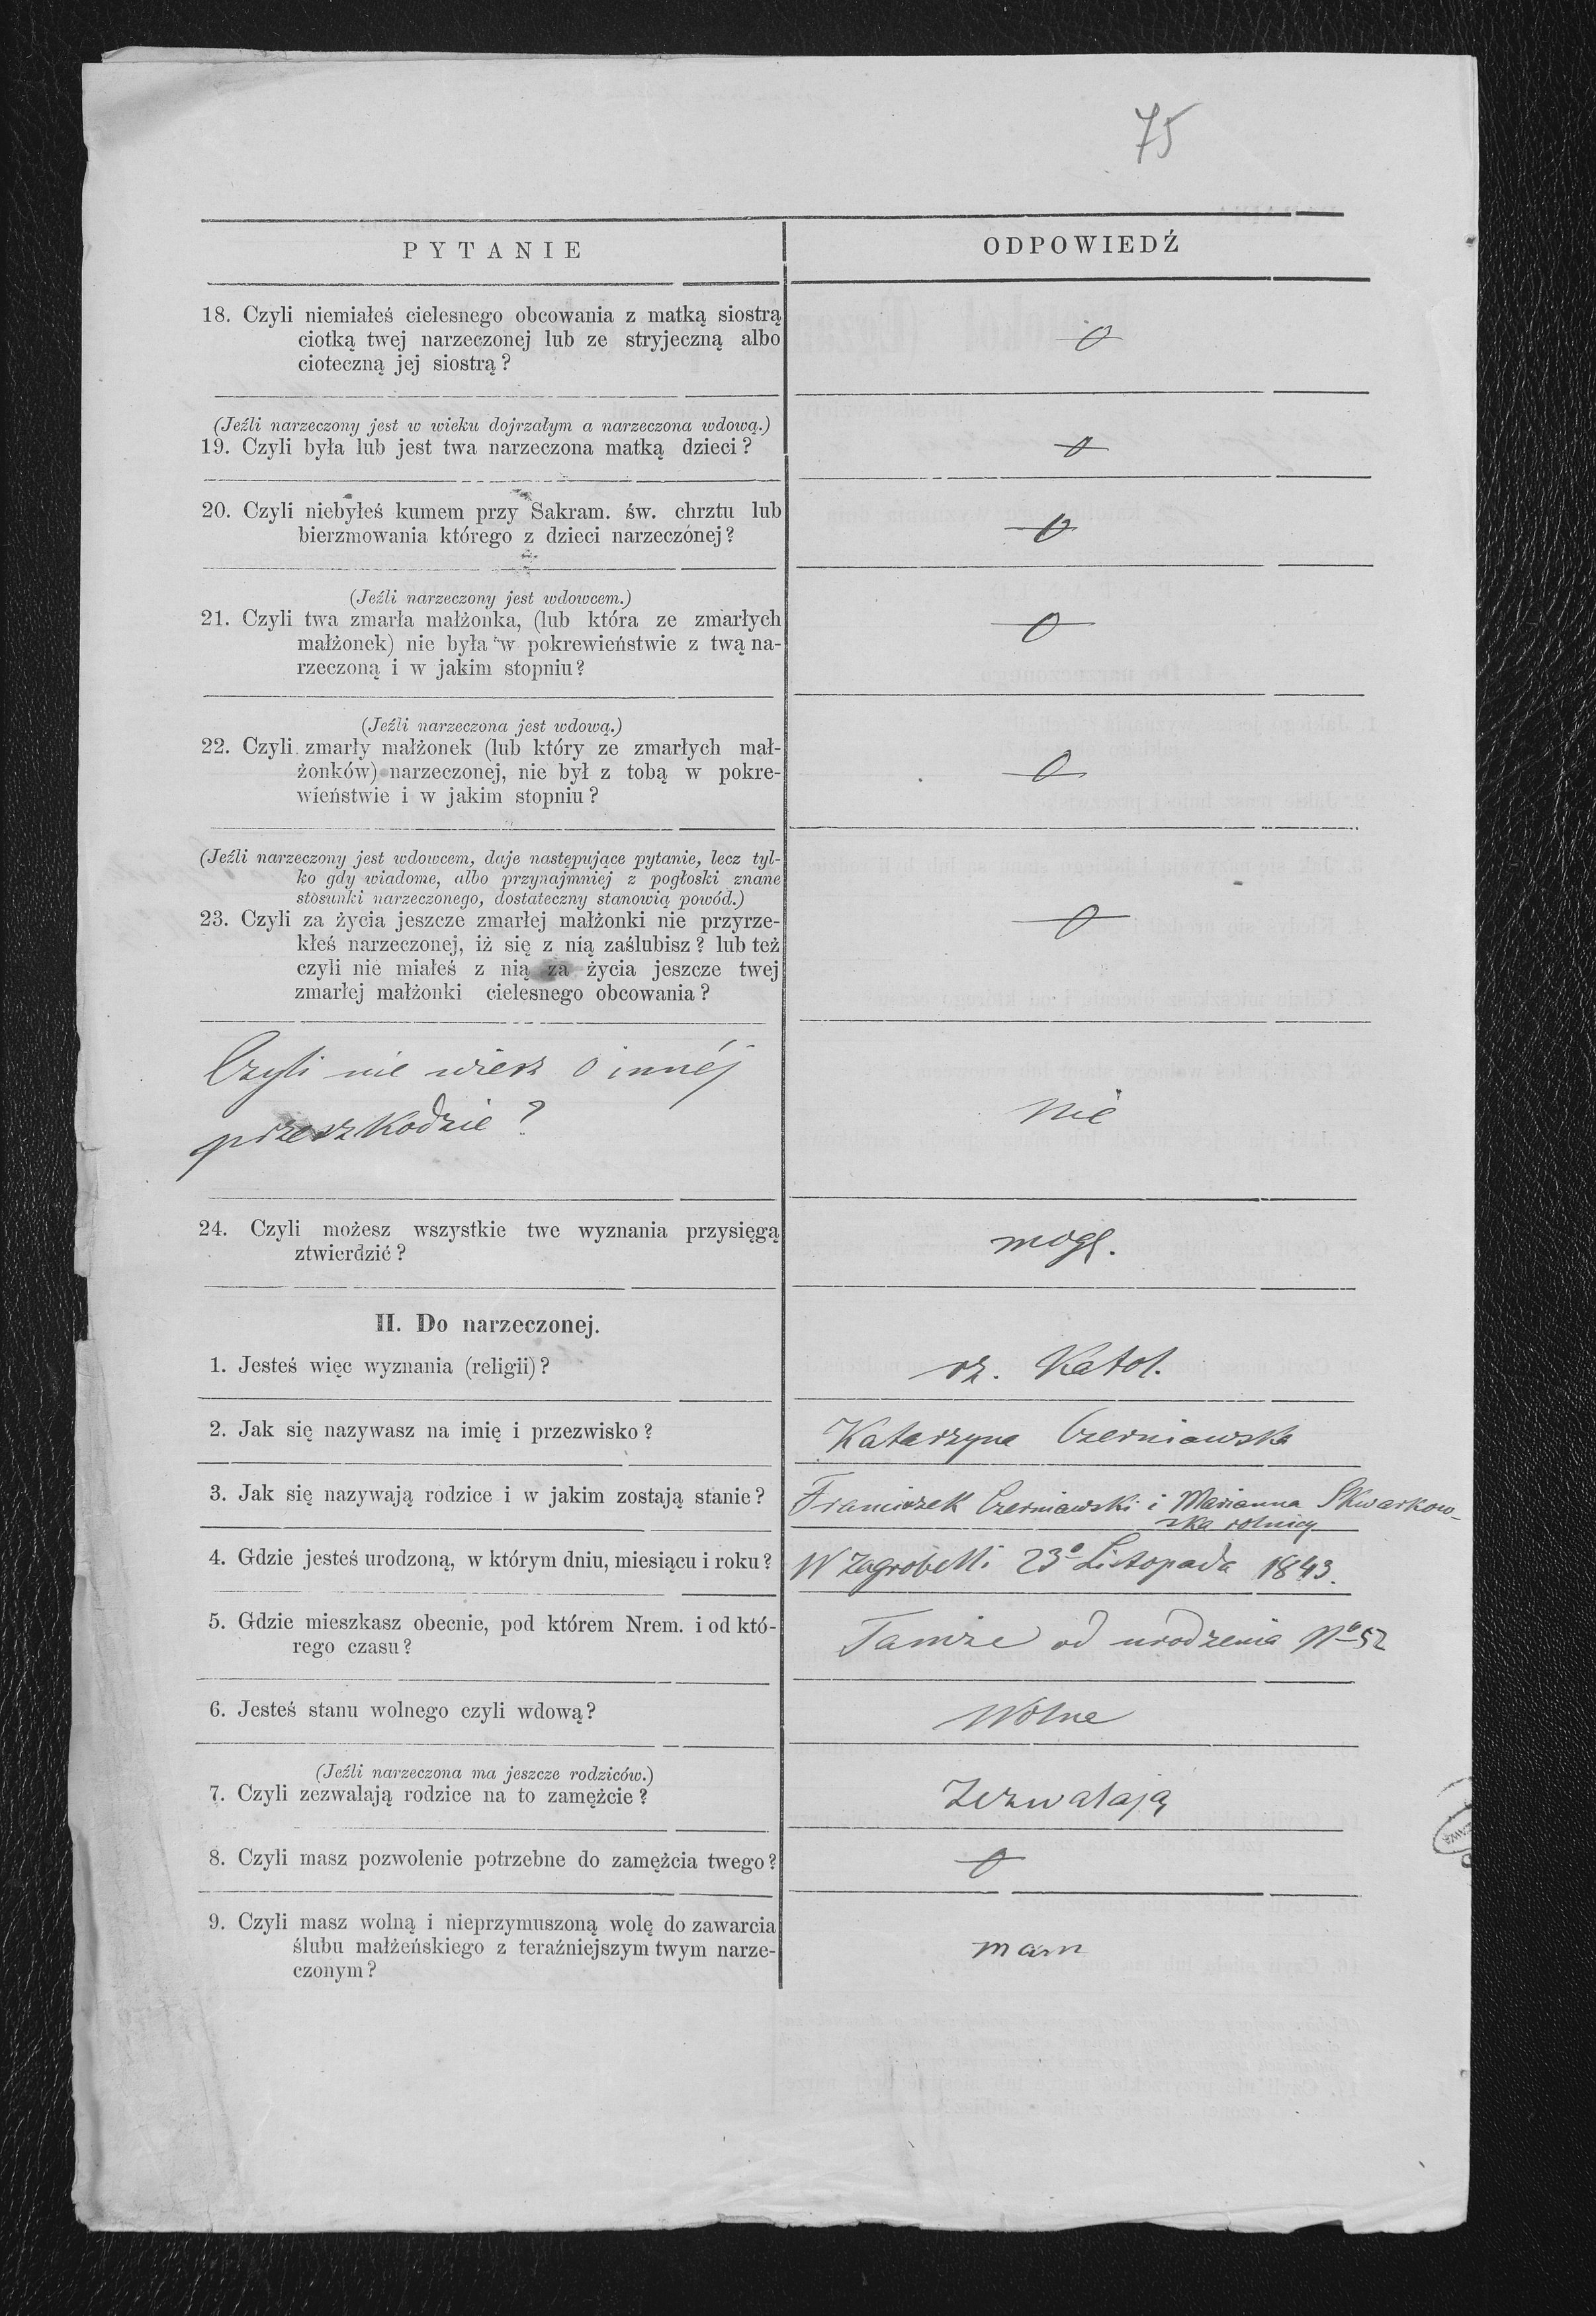 75
PYTANIE
ODPOWIEDŹ
18. Czyli niemiałeś cielesnego obcowania z matką siostrą
ciotką twej narzeczonej lub ze stryjeczną albo
cioteczną jej siostrą?
(Jeźli narzeczony jest w wieku dojrzałym a narzeczona wdową.)
19. Czyli była lub jest twa narzeczona matką dzieci?
20. Czyli niebyłeś kumem przy Sakram. św. chrztu lub
bierzmowania którego z dzieci narzeczonej?
(Jeźli narzeczony jest wdowcem.)
21. Czyli twa zmarła małżonka, (lub która ze zmarłych
małżonek) nie była w pokrewieństwie z twą na-
rzeczoną i w jakim stopniu?
(Jeźli narzeczona jest wdową.)
22. Czyli zmarły małżonek (lub który ze zmarłych mał-
żonków) narzeczonej, nie był z tobą w pokre-
wieństwie i w jakim stopniu?
(Jeźli narzeczony jest wdowcem, daje następujące pytanie, lecz tyl-
ko gdy wiadome, albo przynajmniej z pogłoski znane
stosunki narzeczonego, dostateczny stanowią powód.)
23. Czyli za życia jeszcze zmarłej małżonki nie przyrze-
kłeś narzeczonej, iż się z nią zaślubisz? lub też
czyli nie miałeś z nią za życia jeszcze twej
zmarłej małżonki cielesnego obcowania?
Czyli nie wiesz o innéj
przeszkodzie?
nie
24. Czyli możesz wszystkie twe wyznania przysięgą
ztwierdzić?
mogę.
II. Do narzeczonej.
1. Jesteś więc wyznania (religii)?
rz. Katol.
2. Jak się nazywasz na imię i przezwisko?
Katarzyna Czerniawska
3. Jak się nazywają rodzice i w jakim zostają stanie?
Franciszek Czerniawski i Marianna Skwarkow-
ska rolnicy
4. Gdzie jesteś urodzoną, w którym dniu, miesiącu i roku?
W Zagrobelli 23o Listopada 1843.
5. Gdzie mieszkasz obecnie, pod którem Nrem. i od któ-
rego czasu?
Tamże od urodzenia No 52
6. Jesteś stanu wolnego czyli wdową?
Wolna
(Jeźli narzeczona ma jeszcze rodziców.)
7. Czyli zezwalają rodzice na to zamężcie?
Zezwalają
8. Czyli masz pozwolenie potrzebne do zamężcia twego?
9. Czyli masz wolną i nieprzymuszoną wolę do zawarcia
ślubu małżeńskiego z teraźniejszym twym narze-
czonym?
mam